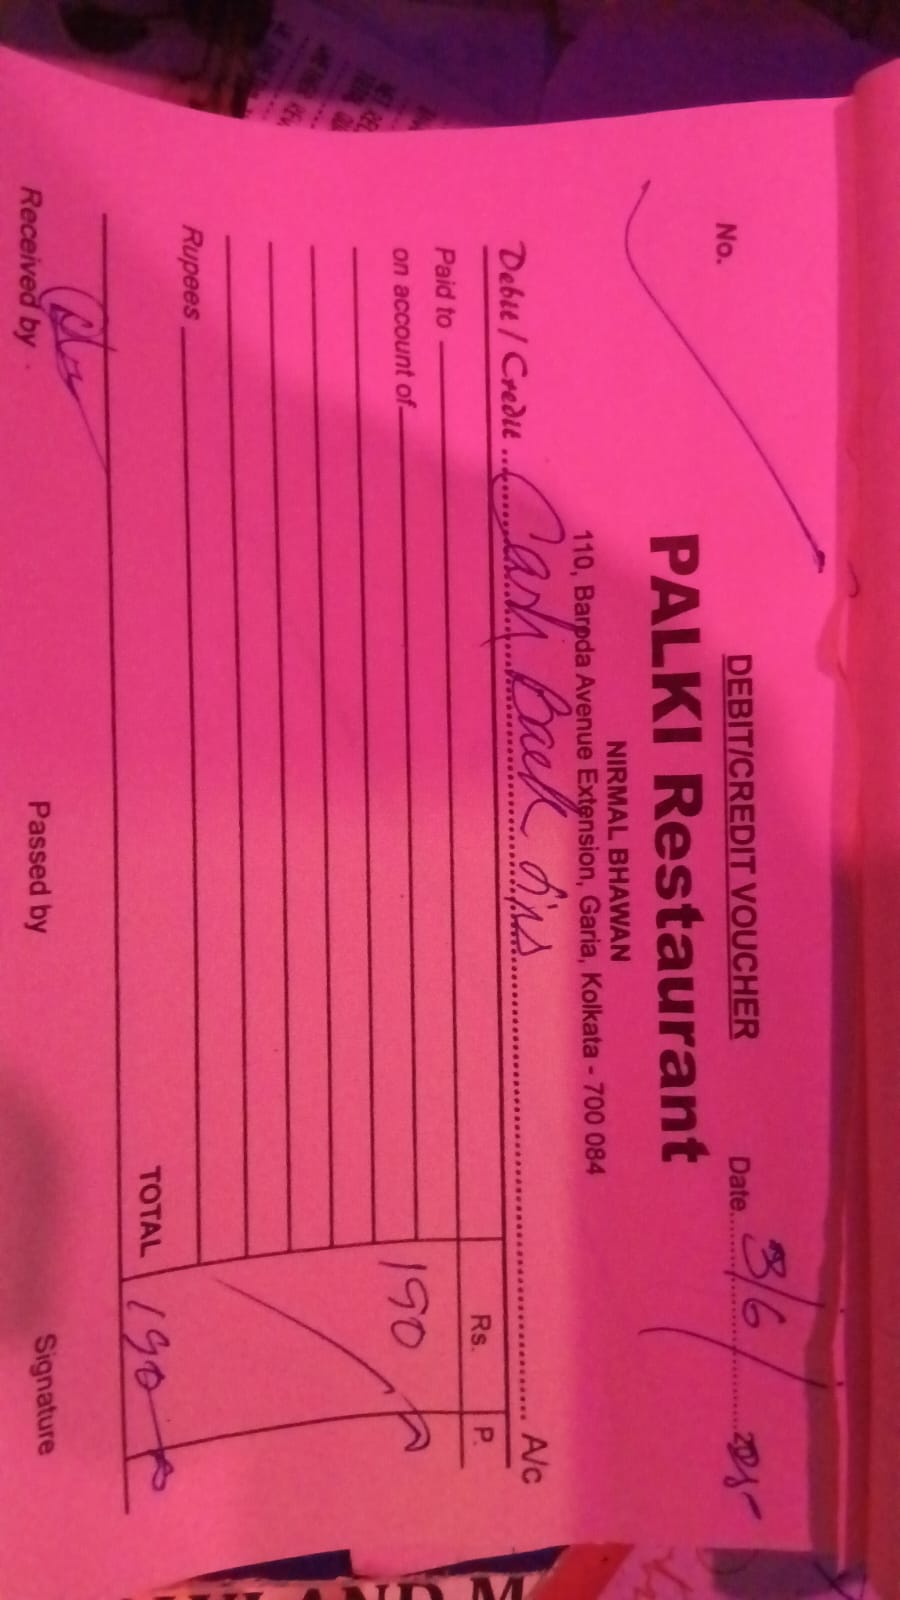 DEBIT/CREDIT VOUCHER
No.
Date 3/6/ 2025
PALKI Restaurant
NIRMAL BHAWAN
110, Baroda Avenue Extension, Garia, Kolkata - 700 084
Debit / Credit Cash Back A/c
Rs. P.
Paid to
on account of 190
Rupees
TOTAL 190
Received by Passed by Signature